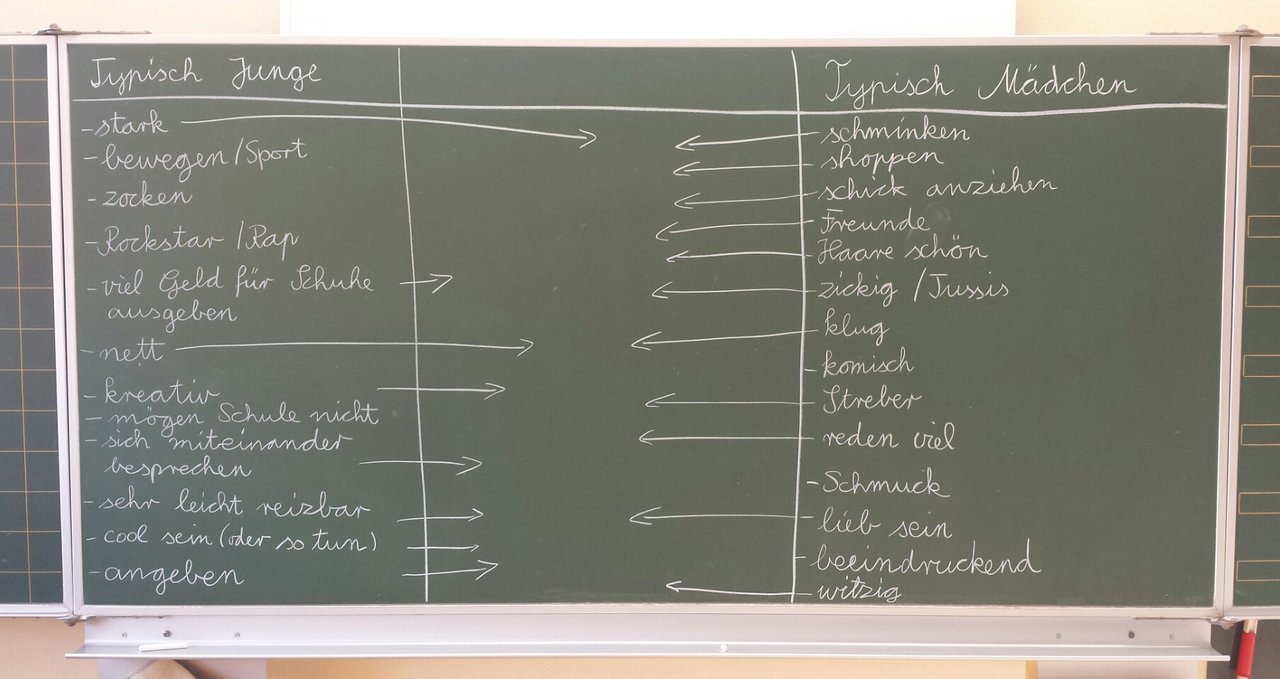 Typisch Junge
- stark
- bewegen/Sport
- zocken
- Rockstar /Rap
- viel Geld für Schuhe
ausgeben
- nett
- kreativ
- mögen Schule nicht
- sich miteinander
besprechen
- sehr leicht reizbar
- cool sein (oder so tun)
- angeben
Typisch Mädchen
- schminken
- shoppen
- schick anziehen
- Freunde
- Haare schön
- zickig /Tussis
- klug
- komisch
- Streber
- reden viel
- Schmuck
- lieb sein
- beeindruckend
- witzig